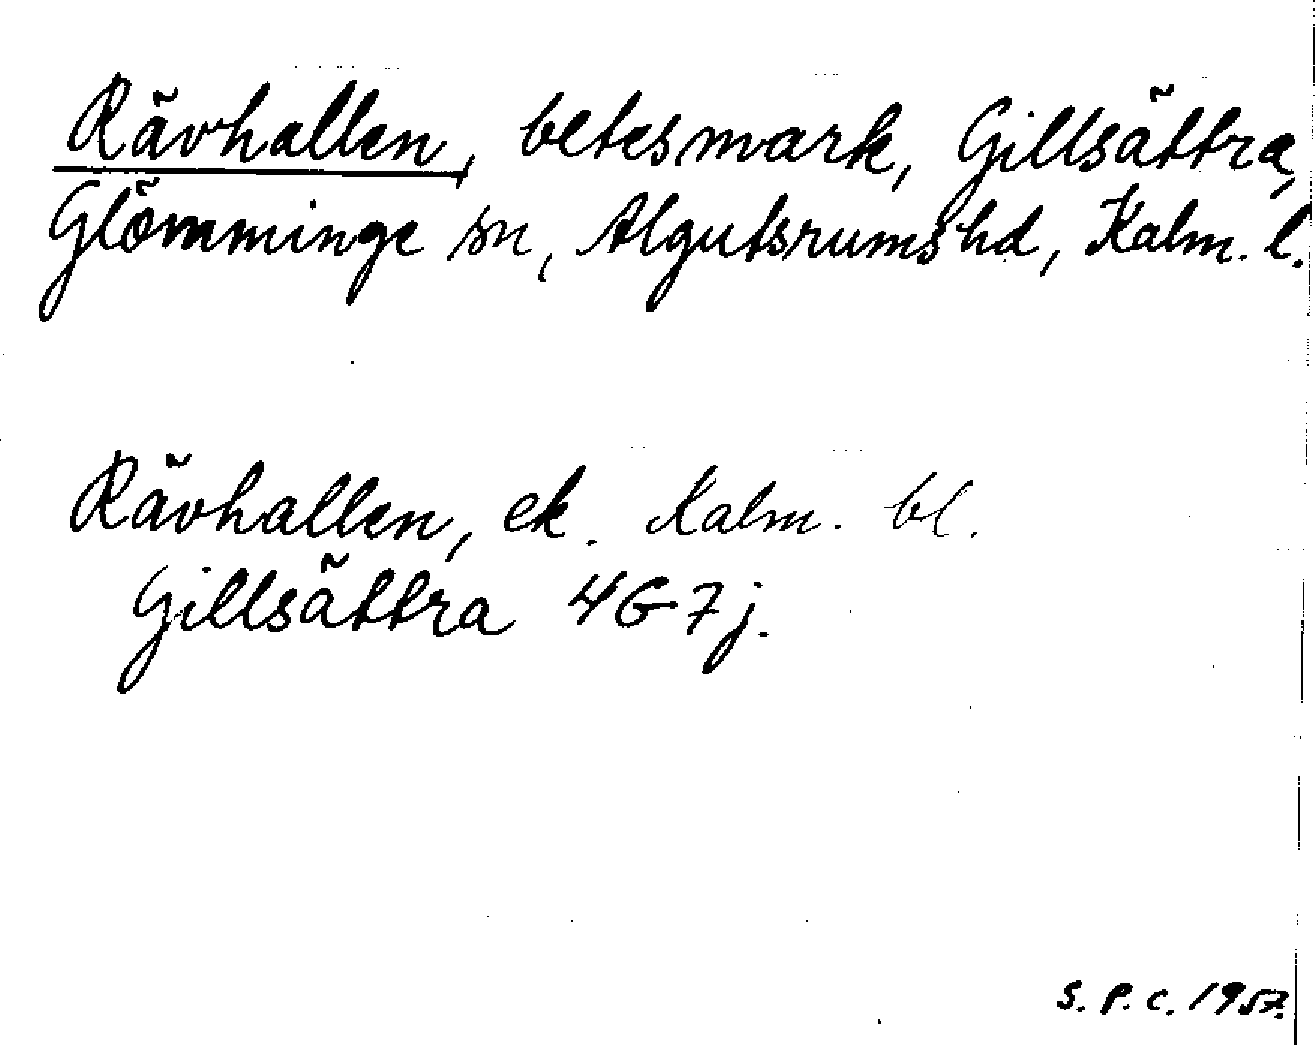 Rävhallen, betesmark, Gillsättra,
Glömminge sn, Algutsrumshd, Kalm. l.
Rävhallen, ek. Kalm. bl.
Gillsättra 4G7j.
S. P. C. 1957.